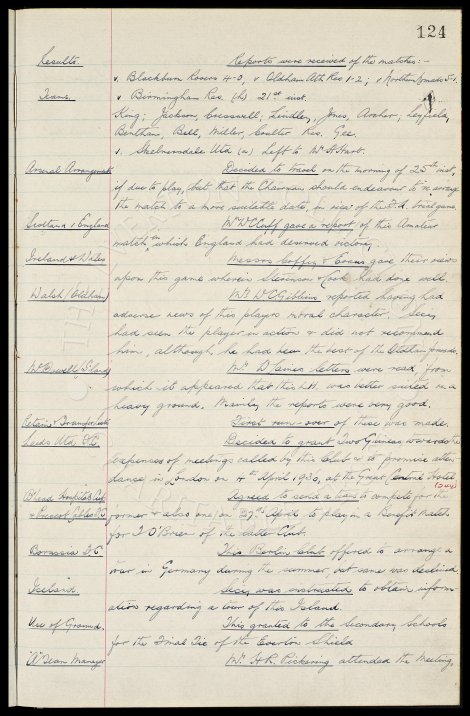 124
Results. Reports were received of the matches:-
v. Blackburn Rovers 4-0, v Oldham Ath Res 1-2; v Northern Nomads 5-1.
Teams. v Birmingham Res. (h) 21st inst.
King; Jackson, Cresswell; Lindley, Jones, Archer; Leyfield,
Bentham, Bell, Miller, Coulter Res. Gee.
v. Skelmersdale Utd (a) Left to Mr. H. Hart.
Arsenal Arrangements Decided to travel on the morning of 25th inst,
if due to play, but that the Chairman should endeavour to re arrange
the match to a more suitable date, in view of the
Scotland v England Mr. W.C. Cuff gave a report of this Amateur
match in which England had deserved victory.
Ireland v Wales Messrs Coffey & Evans gave their views
upon this game wherein Stevenson & Cook had done well.
Walsh (Oldham) Mr. W.C. Gibbins reported having had
adverse news of this players moral character. Secy
had seen the player in action & did not recommend
him, although, he had been the best of the Oldham forwards.
Mr. letters were read, from
which it appeared that this L.H. was better suited on a
heavy ground. Mainly the reports were very good.
Retain & Transfer First run-over of these was made.
Leeds Utd. F.C. Decided to grant Two Guineas towards the
expenses of meetings called by this Club & to promise atten-
dance in London on 4th April 1936, at the Great Central Hotel
Hospital Cup Agreed to send a team to compete for the (Cup)
& Prescot Cables F.C. former & also one on 27th April to play in a Benefit Match
for T. O'Brien of the latter Club.
Borussia F.C This Berlin Club offered to arrange a
tour in Germany during the summer, but same was declined.
Iceland. Secy was instructed to obtain inform-
ation regarding a tour of this Island.
Use of Ground. This granted to the Secondary Schools
for the Final Tie of the Everton Shield
"A" Team Manager Mr. H.R. Pickering attended the Meeting,